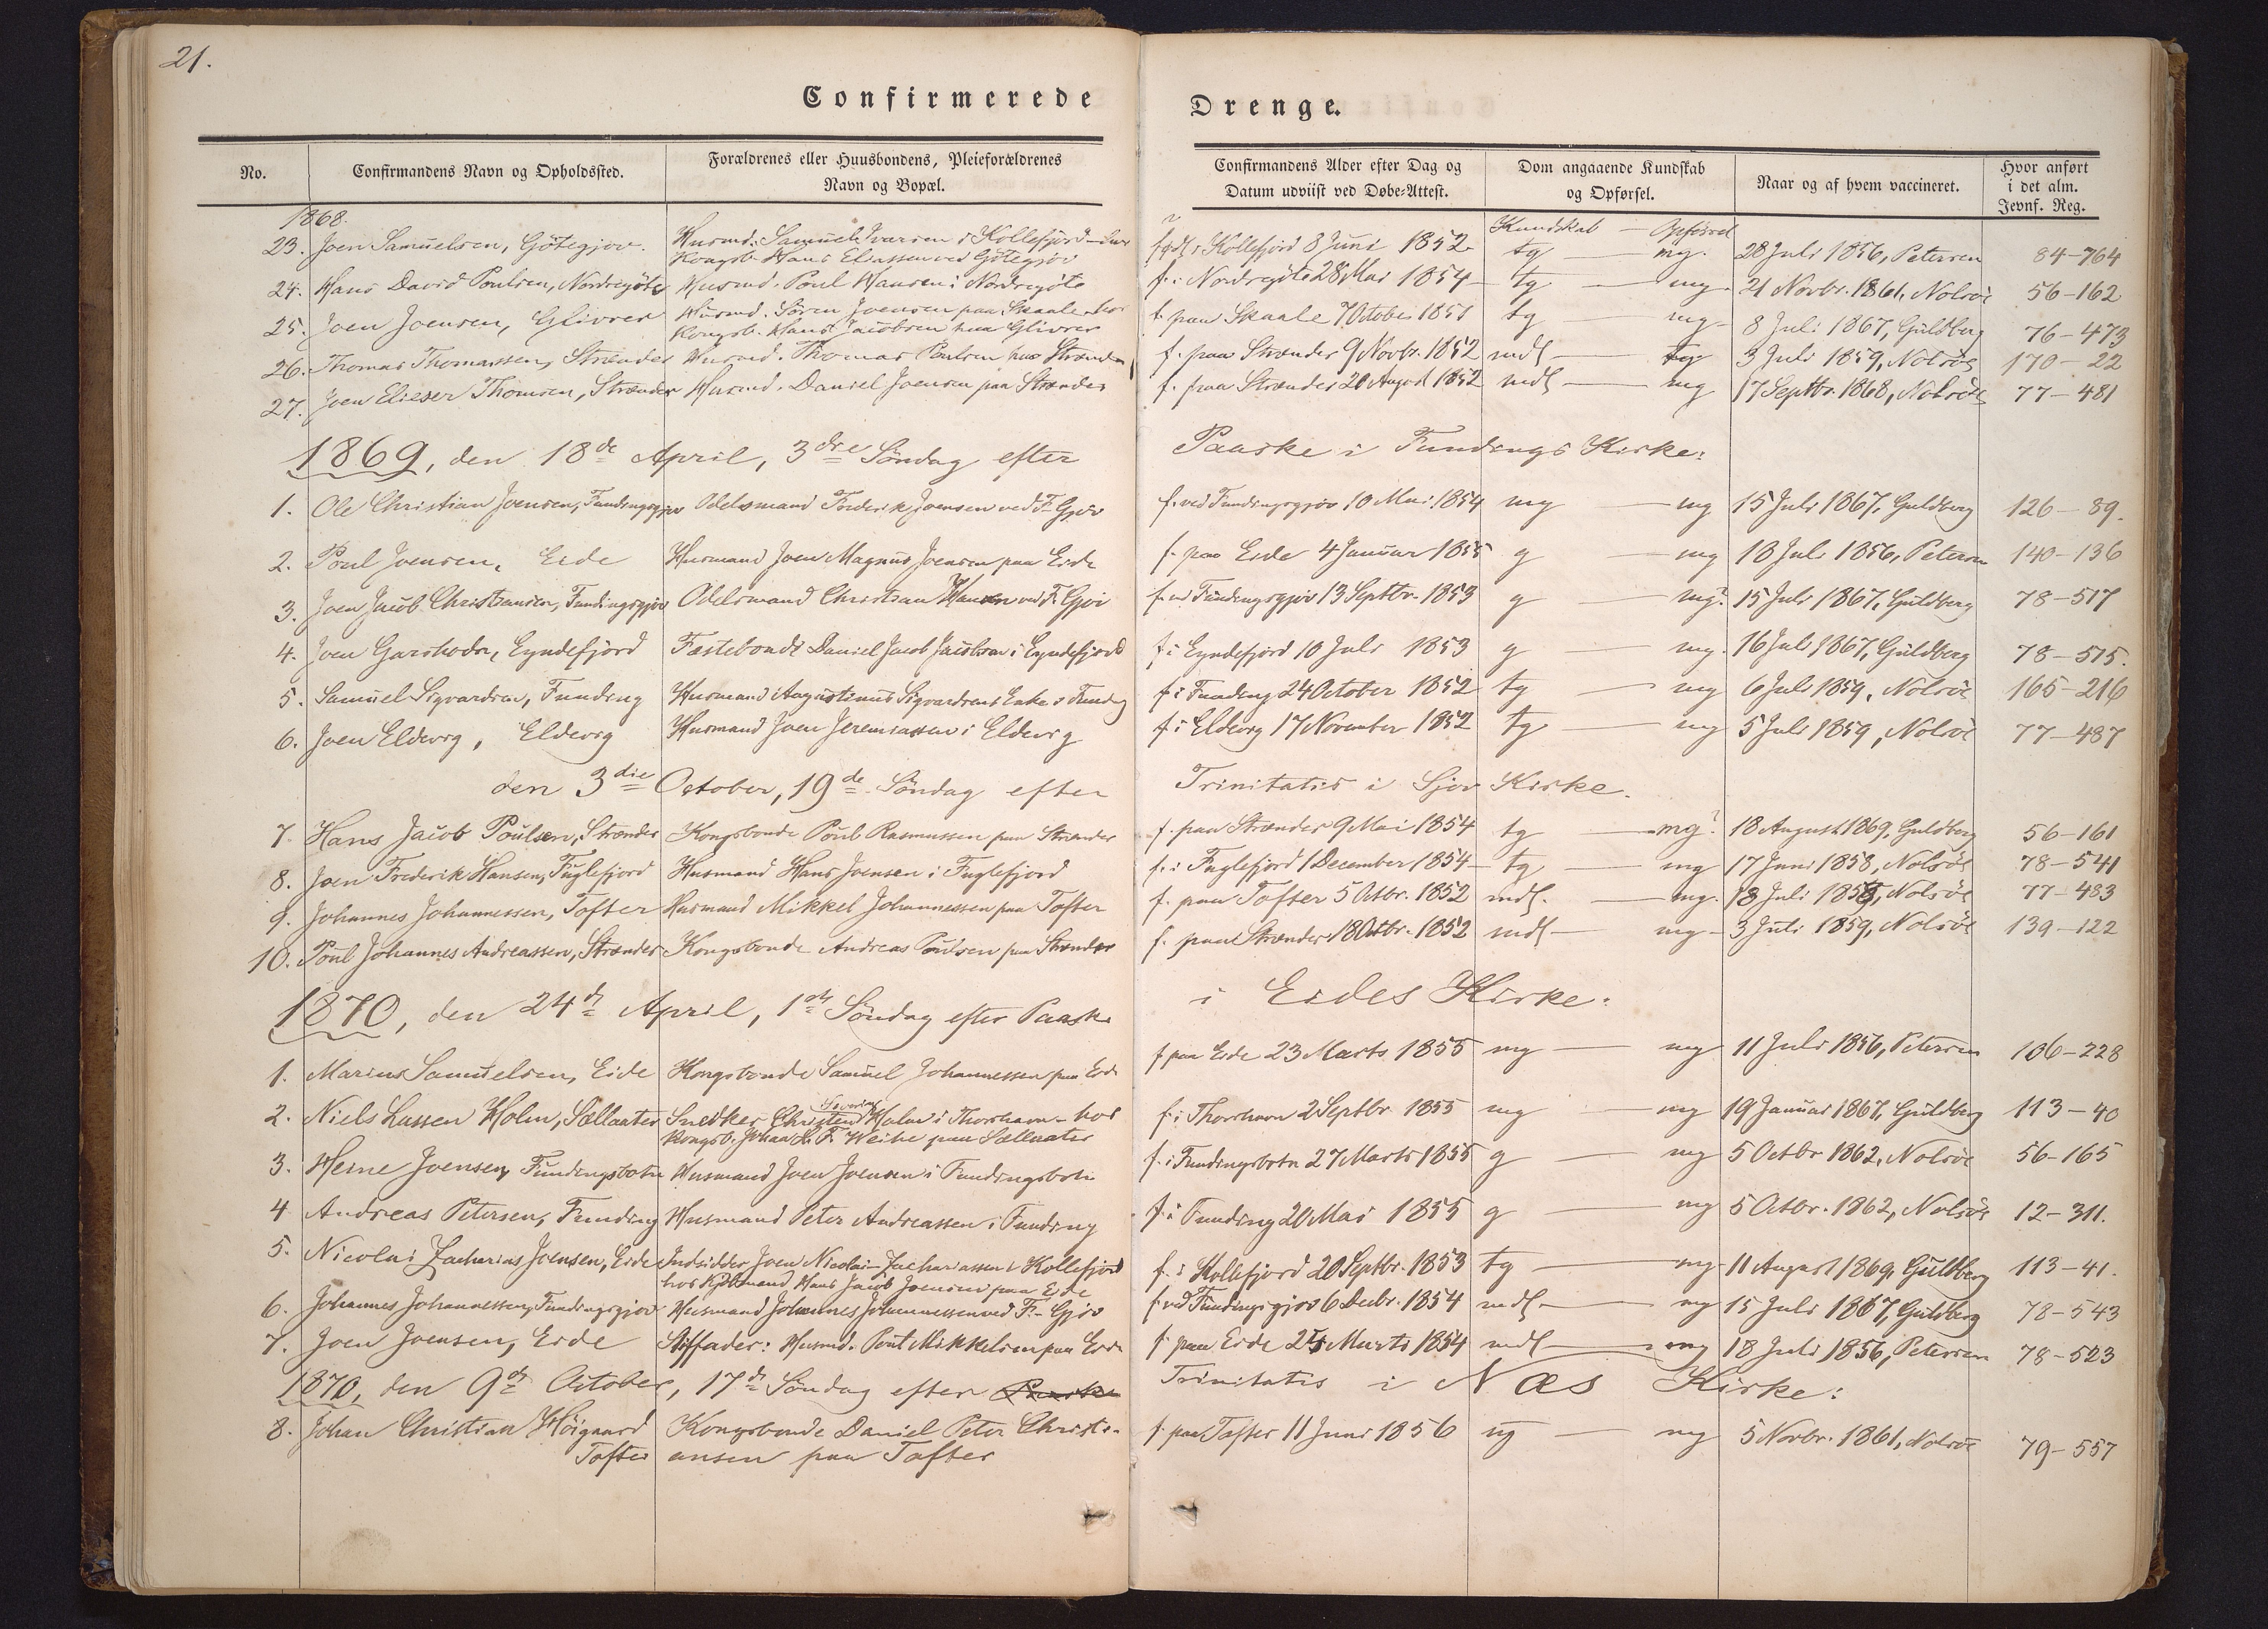 21.
Confirmerede Drenge.
No. Confirmandens Navn og Opholdssted. Forældrenes eller Huusbondens, Pleieforældrenes Navn og Bopæl. Confirmandens Alder efter Dag og Datum udviist ved Døbe-Attest. Dom angaaende Kundskab og Opførsel. Naar og af hvem vaccineret. Hvor anført i det alm. Jevnf. Reg.
1868. Kundskab — Opförsel
23. Joen Samuelsen, Götegjov. Husmd. Samuel Ivarsen i Kollefjord
Kongsb. Hans Eliassen ved Götegjov födt i Kollefjord 8 Juni 1852 tg — mg. 28 Juli 1856, Petersen 84-764
24. Hans David Poulsen, Nordregöte Husmd. Poul Hansen i Nordregöte f. i Nordregöte 28 Mai 1854 tg — mg. 21 Novbr. 1861, Nolsöe 56-162
25. Joen Joensen, Glivrer Husmd. Sören Joensen paa Skaale hos
Kongsb. Hans Jacobsen paa Glivrer f. paa Skaale 7 October 1851 tg — mg. 8 Juli 1867, Guldberg 76-473
26. Thomas Thomassen, Strænder Husmd. Thomas Poulsen paa Strænder f. paa Strænder 9 Novbr. 1852 mdl — tg 3 Juli 1859, Nolsöe 170-22
27. Joen Elieser Thomsen, Strænder Husmd. Daniel Joensen paa Strænder f. paa Strænder 20 August 1852 mdl — mg 17 Septbr. 1868, Nolsöe 77-481
1869, den 18de April, 3die Söndag efter Paaske i Fundings Kirke:
1. Ole Christian Joensen, Fundingsgjov Odelsmand Frederik Joensen ved F. Gjov f. ved Fundingsgjov 10 Mai 1854 mg — mg 15 Juli 1867, Guldberg 126-89.
2. Poul Joensen, Eide Husmand Joen Magnus Joensen paa Eide f. paa Eide 4 Januar 1855 g — mg 18 Juli 1856, Petersen 140-136
3. Joen Jacob Christiansen, Fundingsgjov Odelsmand Christian Hansen ved F. Gjov f. ved Fundingsgjov 13 Septbr. 1853 g — mg? 15 Juli 1867, Guldberg 78-517
4. Joen Garshodn, Eyndefjord Fæstebonde Daniel Jacob Jacobsen i Eyndefjord f. i Eyndefjord 10 Juli 1853 g — mg. 16 Juli 1867, Guldberg 78-515.
5. Samuel Sigvardsen, Funding Husmand Augustinus Sigvardsens Enke i Funding f. i Funding 24 October 1852 tg — mg 6 Juli 1859, Nolsöe 165-216
6. Joen Eldevig, Eldevig Husmand Joen Jeremiassen i Eldevig f. i Eldevig 17 November 1852 tg — mg 5 Juli 1859, Nolsöe 77-487
den 3die October, 19de Söndag efter Trinitatis i Gjov Kirke.
7. Hans Jacob Poulsen, Strænder Kongsbonde Poul Rasmussen paa Strænder f. paa Strænder 9 Mai 1854 tg — mg? 18 August 1869, Guldberg 56-161
8. Joen Frederik Hansen, Fuglefjord Husmand Hans Joensen i Fuglefjord f. i Fuglefjord 1 December 1854 tg — mg 17 Juni 1858, Nolsöe 78-541
9. Johannes Johannessen, Tofter Husmand Mikkel Johannessen paa Tofter f. paa Tofter 5 Octbr. 1852 mdl. — mg. 18 Juli 1858, Nolsöe 77-483
10. Poul Johannes Andreassen, Strænder Kongsbonde Andreas Poulsen paa Strænder f. paa Strænder 18 Octbr. 1852 mdl — mg 3 Juli 1859, Nolsöe 139-122
1870, den 24de April, 1ste Söndag efter Paaske i Eides Kirke:
1. Marius Samuelsen, Eide Kongsbonde Samuel Johannessen paa Eide f. paa Eide 23 Marts 1855 mg — mg 11 Juli 1856, Petersen 106-228
2. Niels Lassen Holm, Sællaater Snedker Christen Holm i Thorshavn - hos
Kongsb. Johan L. F. Weihe paa Sællaater f. i Thorshavn 2 Septbr 1855 mg — mg 19 Januar 1867, Guldberg 113-40
3. Heine Joensen, Fundingsbotn Husmand Joen Joensen i Fundingsbotn f. i Fundingsbotn 27 Marts 1855 g — mg 5 Octbr 1862, Nolsöe 56-165
4 Andreas Petersen, Funding Husmand Peter Andreassen i Funding f. i Funding 20 Mai 1855 g — mg 5 Octbr. 1862, Nolsöe 12-311.
5. Nicolai Zacharias Joensen, Eide Indsidder Joen Nicolai Zachariassen i Kollefjord
hos Kjöbmand Hans Jacob Joensen paa Eide f. i Kollefjord 20 Septbr. 1853 tg — mg 11 August 1869, Guldberg 113-41.
6. Johannes Johannessen, Fundingsgjov Husmand Johannes Johannessen ved F. Gjov f. ved Fundingsgjov 6 Decbr. 1854 mdl — mg 15 Juli 1867, Guldberg 78-543
7. Joen Joensen, Eide Stiffader: Husmd. Poul Mikkelsen paa Eide f. paa Eide 25 Marts 1854 mdl — mg 18 Juli 1856, Petersen 78-523
1870, den 9de October, 17de Söndag efter Paaske Trinitatis i Næs Kirke:
8. Johan Christian Höigaard Kongsbonde Daniel Peter Christi- f. paa Tofter 11 Juni 1856 ug — mg 5 Novbr. 1861, Nolsöe 79-557
Tofter ansen paa Tofter